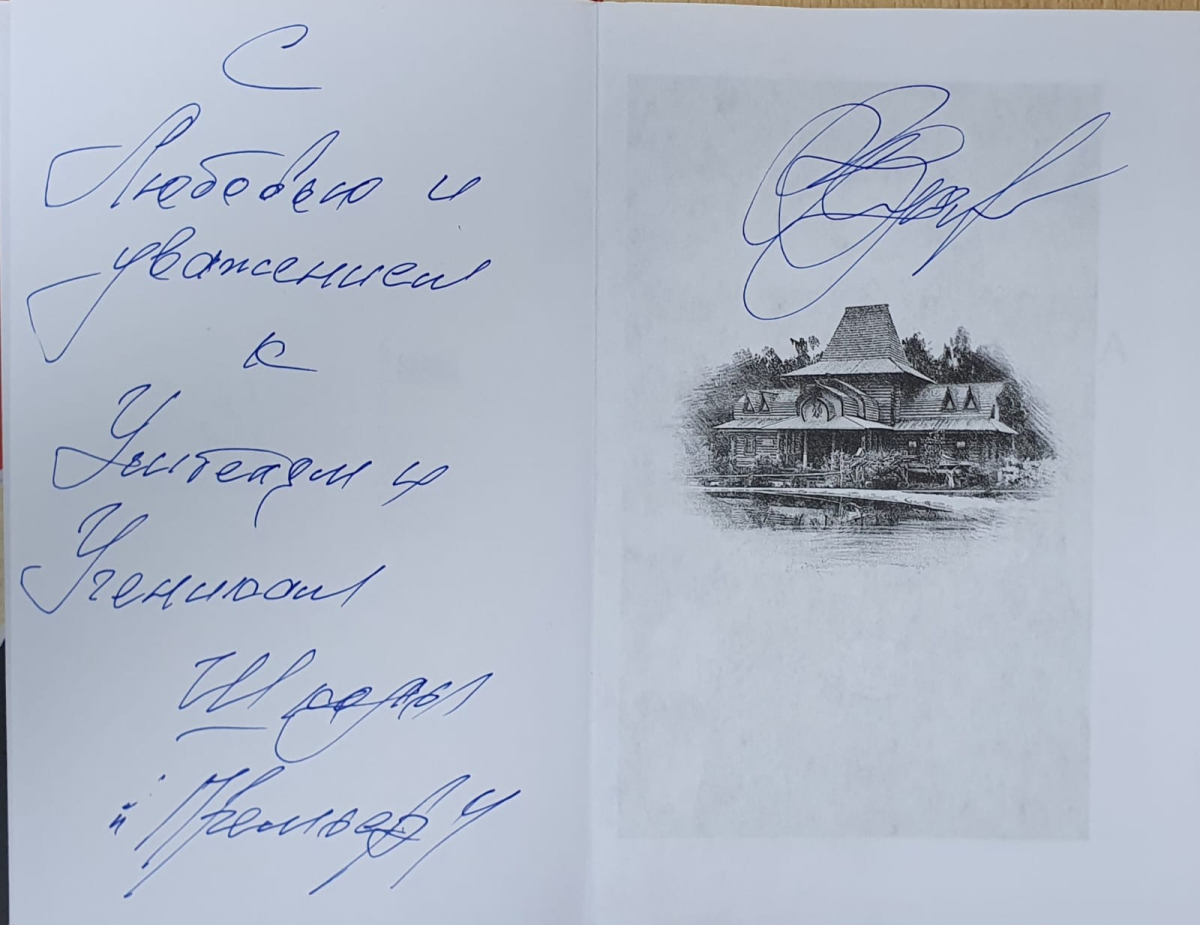 С
Любовью и
уважением
к
Учителям и
Ученикам
Школы
и